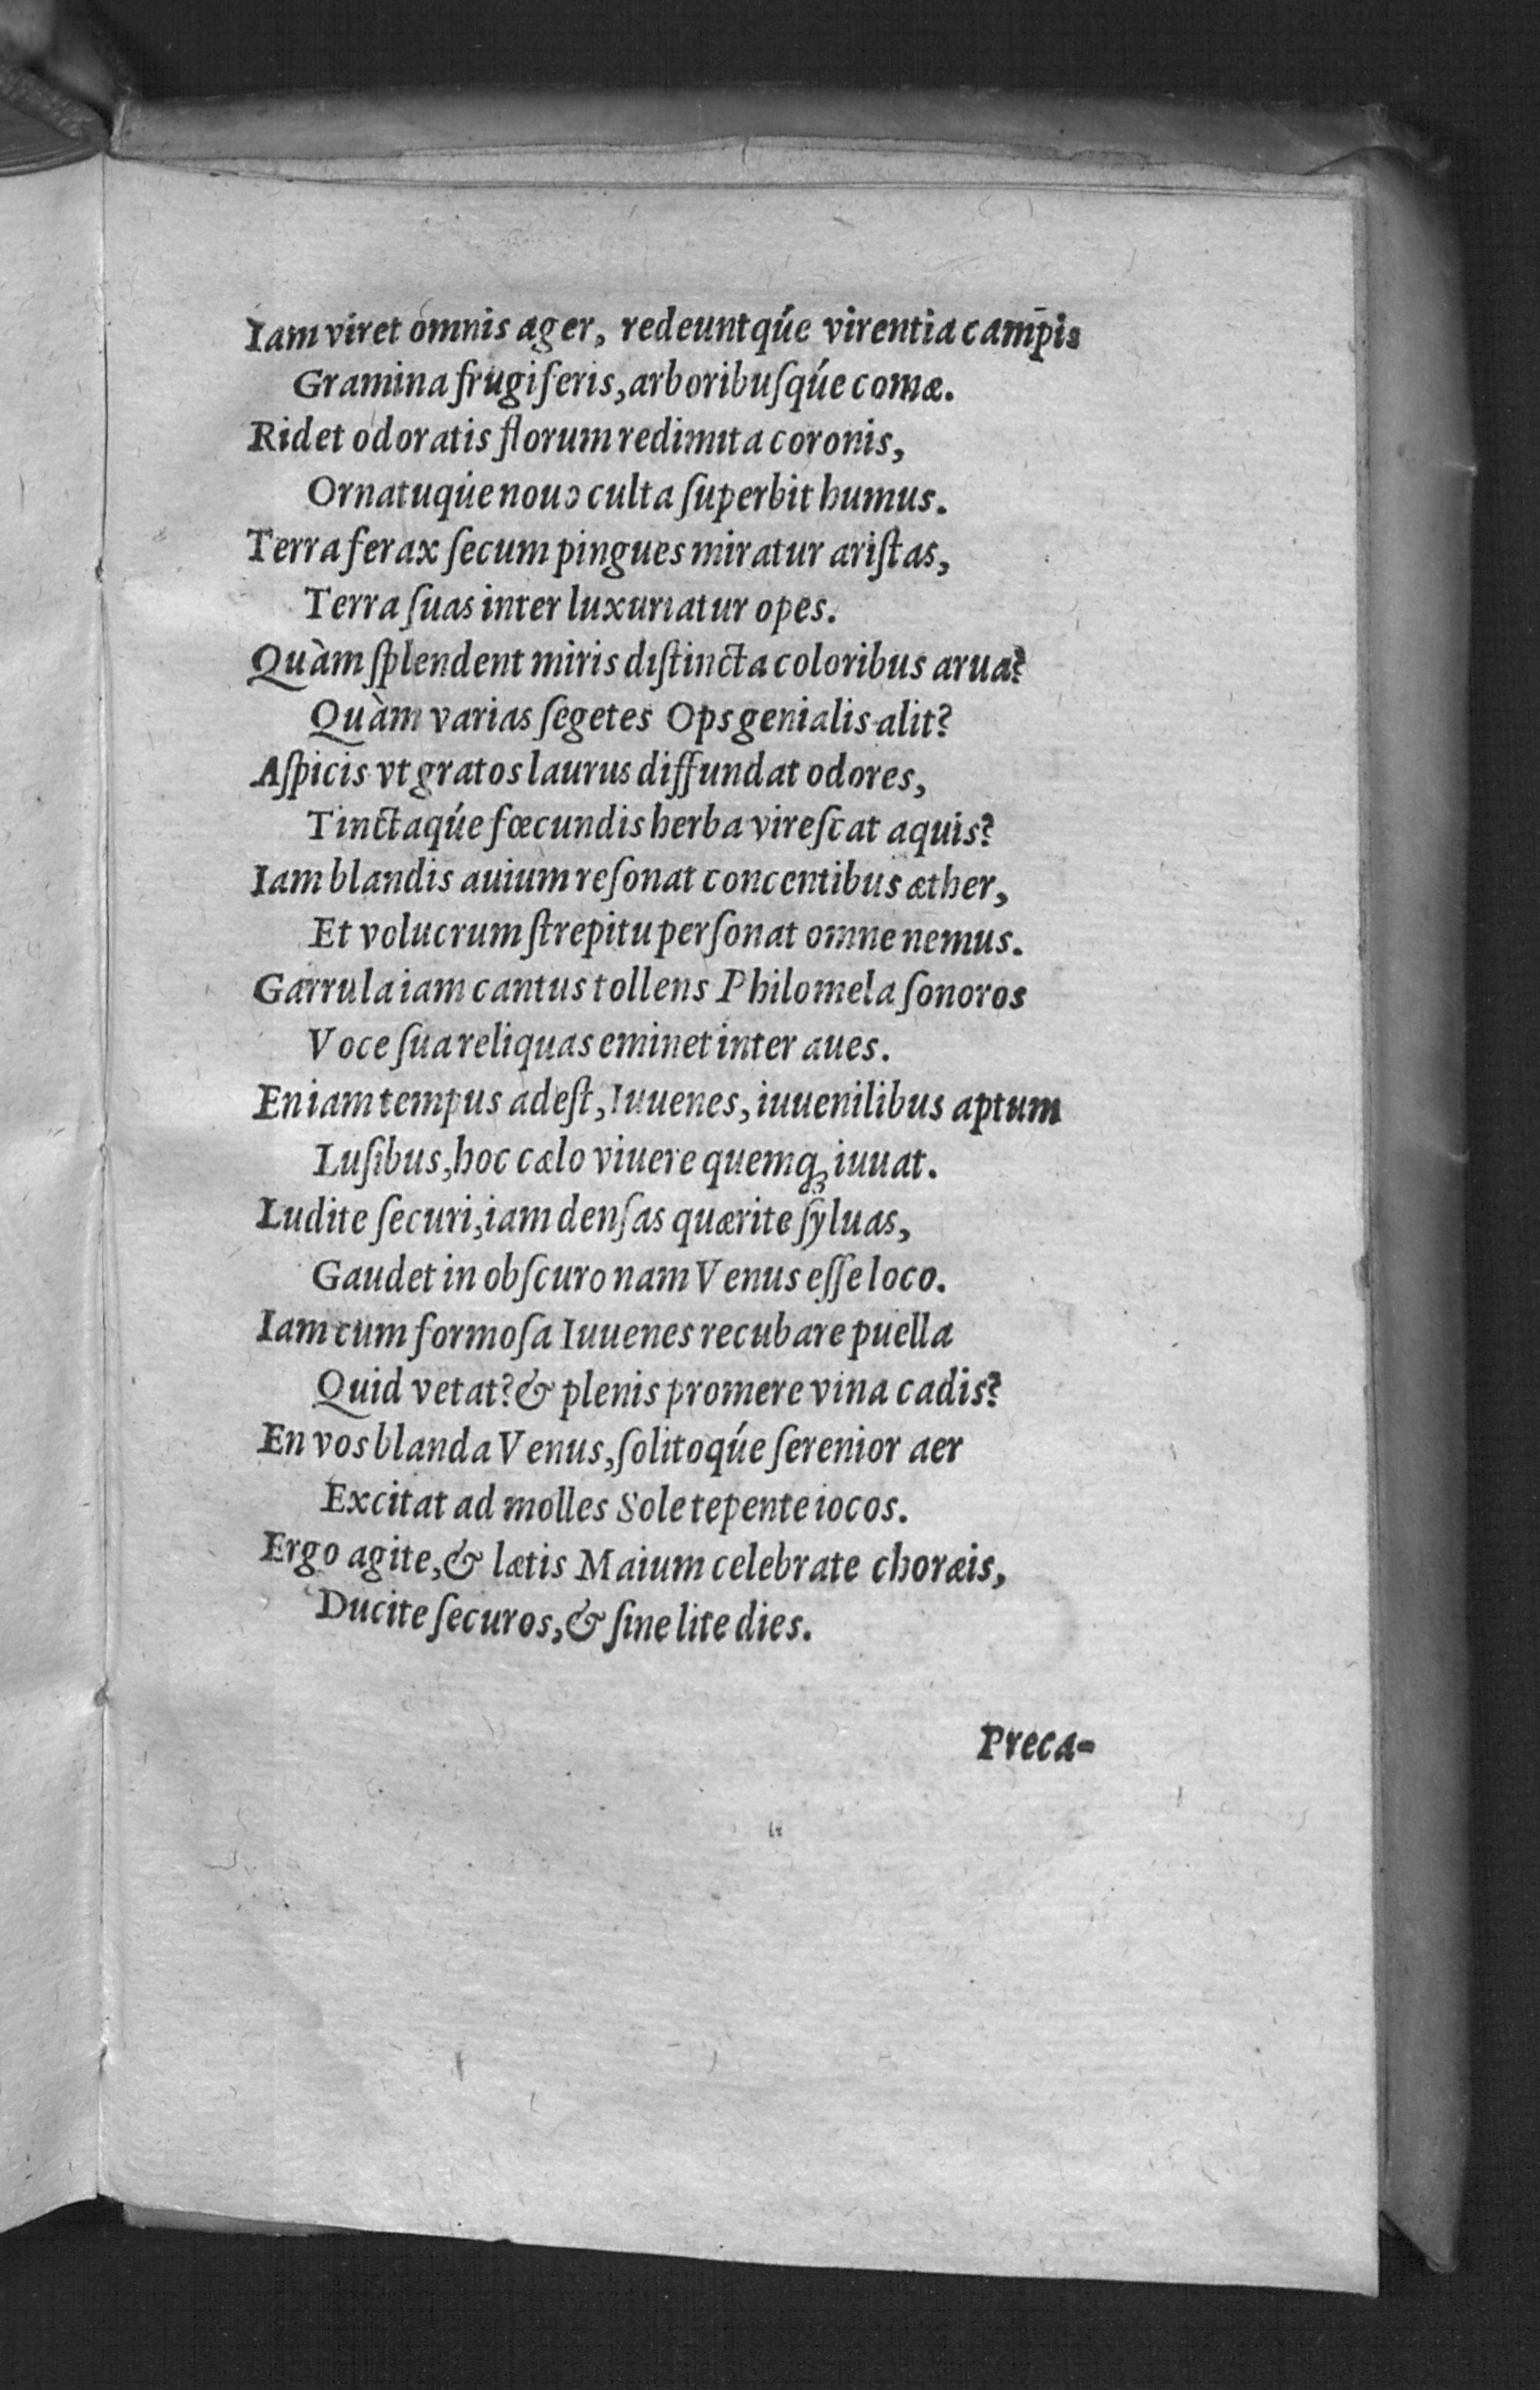 Iam viret omnis ager, redeuntqúe virentia campis
Gramina frugiferis, arboribuſqúe comæ.
Ridet odoratis florum redimita coronis,
Ornatuqúe nouo culta ſuperbit humus.
Terra ferax ſecum pingues miratur ariſtas,
Terra ſuas inter luxuriatur opes.
Quàm ſplendent miris diſtincta coloribus arua?
Quàm varias ſegetes Ops genialis alit?
Aſpicis vt gratos laurus diffundat odores,
Tinctaqúe fœcundis herba vireſcat aquis?
Iam blandis auium reſonat concentibus æther,
Et volucrum ſtrepitu perſonat omne nemus.
Garrula iam cantus tollens Philomela ſonoros
Voce ſua reliquas eminet inter aues.
En iam tempus adeſt, Iuuenes, iuuenilibus aptum
Luſibus, hoc cælo viuere quemq; iuuat.
Ludite ſecuri, iam denſas quærite ſyluas,
Gaudet in obſcuro nam Venus eſſe loco.
Iam cum formoſa Iuuenes recubare puella
Quid vetat? & plenis promere vina cadis?
En vos blanda Venus, ſolitoqúe ſerenior aer
Excitat ad molles Sole tepente iocos.
Ergo agite, & lætis Maium celebrate choræis,
Ducite ſecuros, & ſine lite dies.
Preca-